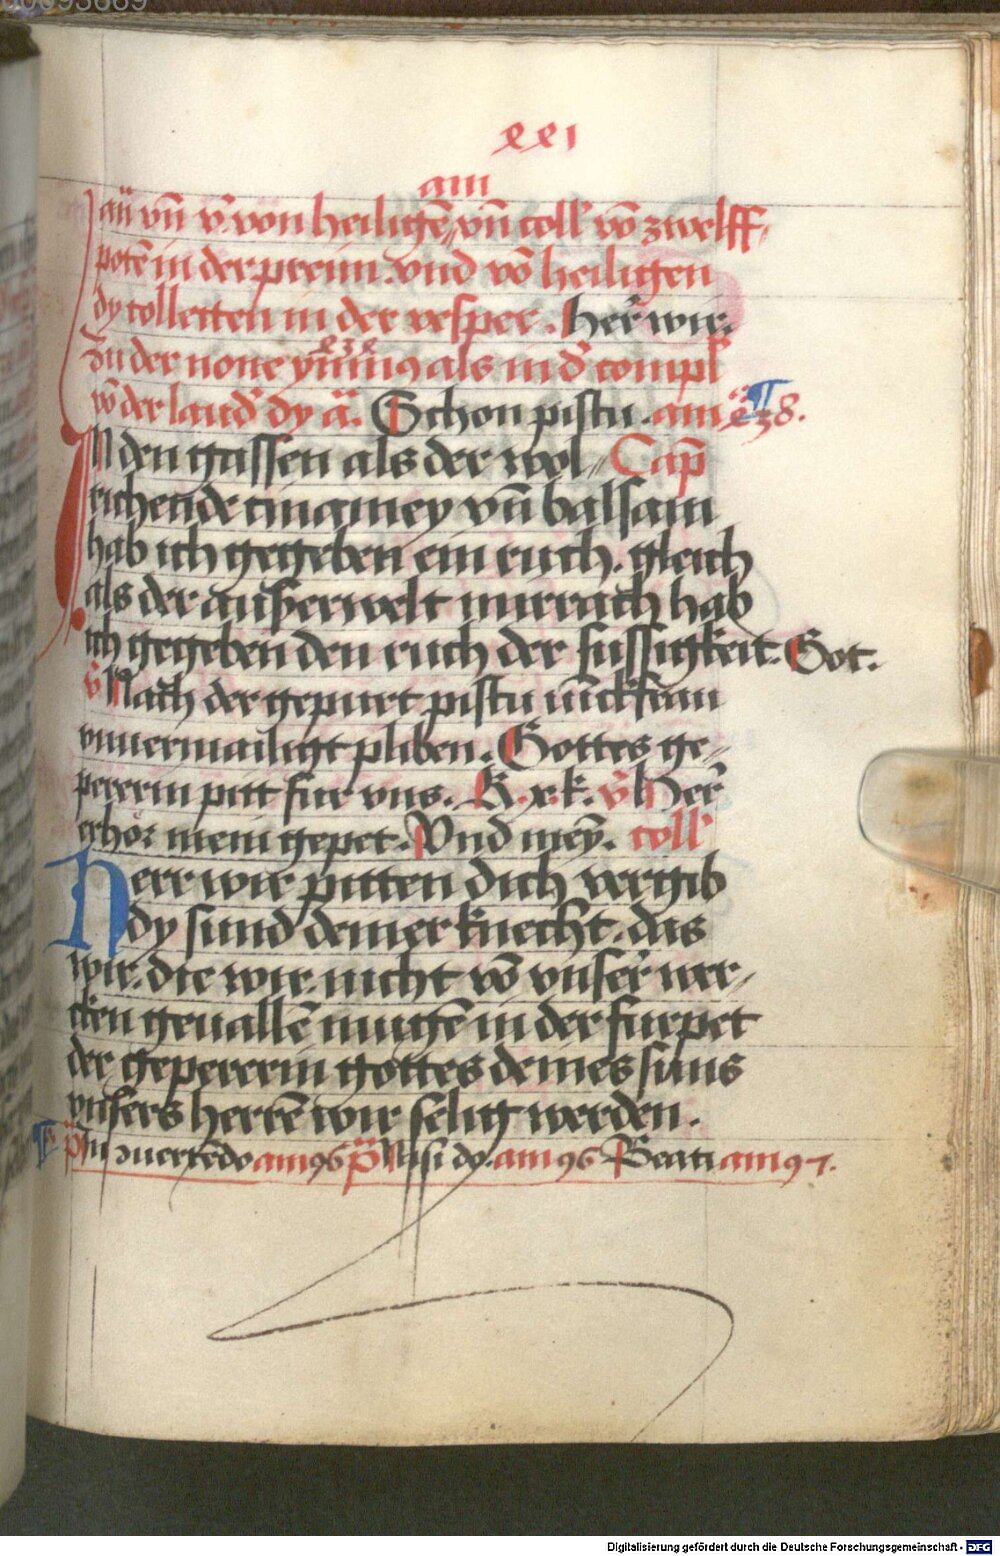 00093669
xxi
am
añ vñ v̄ von heiligē vñ coll vō zwelff
potē in der preim. vnd vō heiligen
dy collecten in der vesper. her wir.
Zu der none ymnus als in d' compl
vō der laud' dy ā. Schon pistu. am 38.
In den gassen als der wol Cap̄
richende cinamey vñ balsam
hab ich gegeben ein ruch. gleich
als der auserwelt mirrach hab
ich gegeben den ruch der sussigkeit. Got.
v̄ Nach der gepurt pistu iūckfrau
vnuermailigt pliben. Gottes ge-
pererin pitt fur vns. K. x. k. v̄ Her
erhör mein gepet. Vnd mey̅. coll
Herr wir pitten dich vergib
dy sund deiner knecht. das
wir. die wir. nicht vō vnser wer-
cken geuallē mugē in der furpet
der gepererin gottes deines suns
vnsers herrē wir selig werden.
p̄ In 2uertēdo am 96 p̄ Nisi do. am 96 Beati am 97.
Digitalisierung gefördert durch die Deutsche Forschungsgemeinschaft - DFG